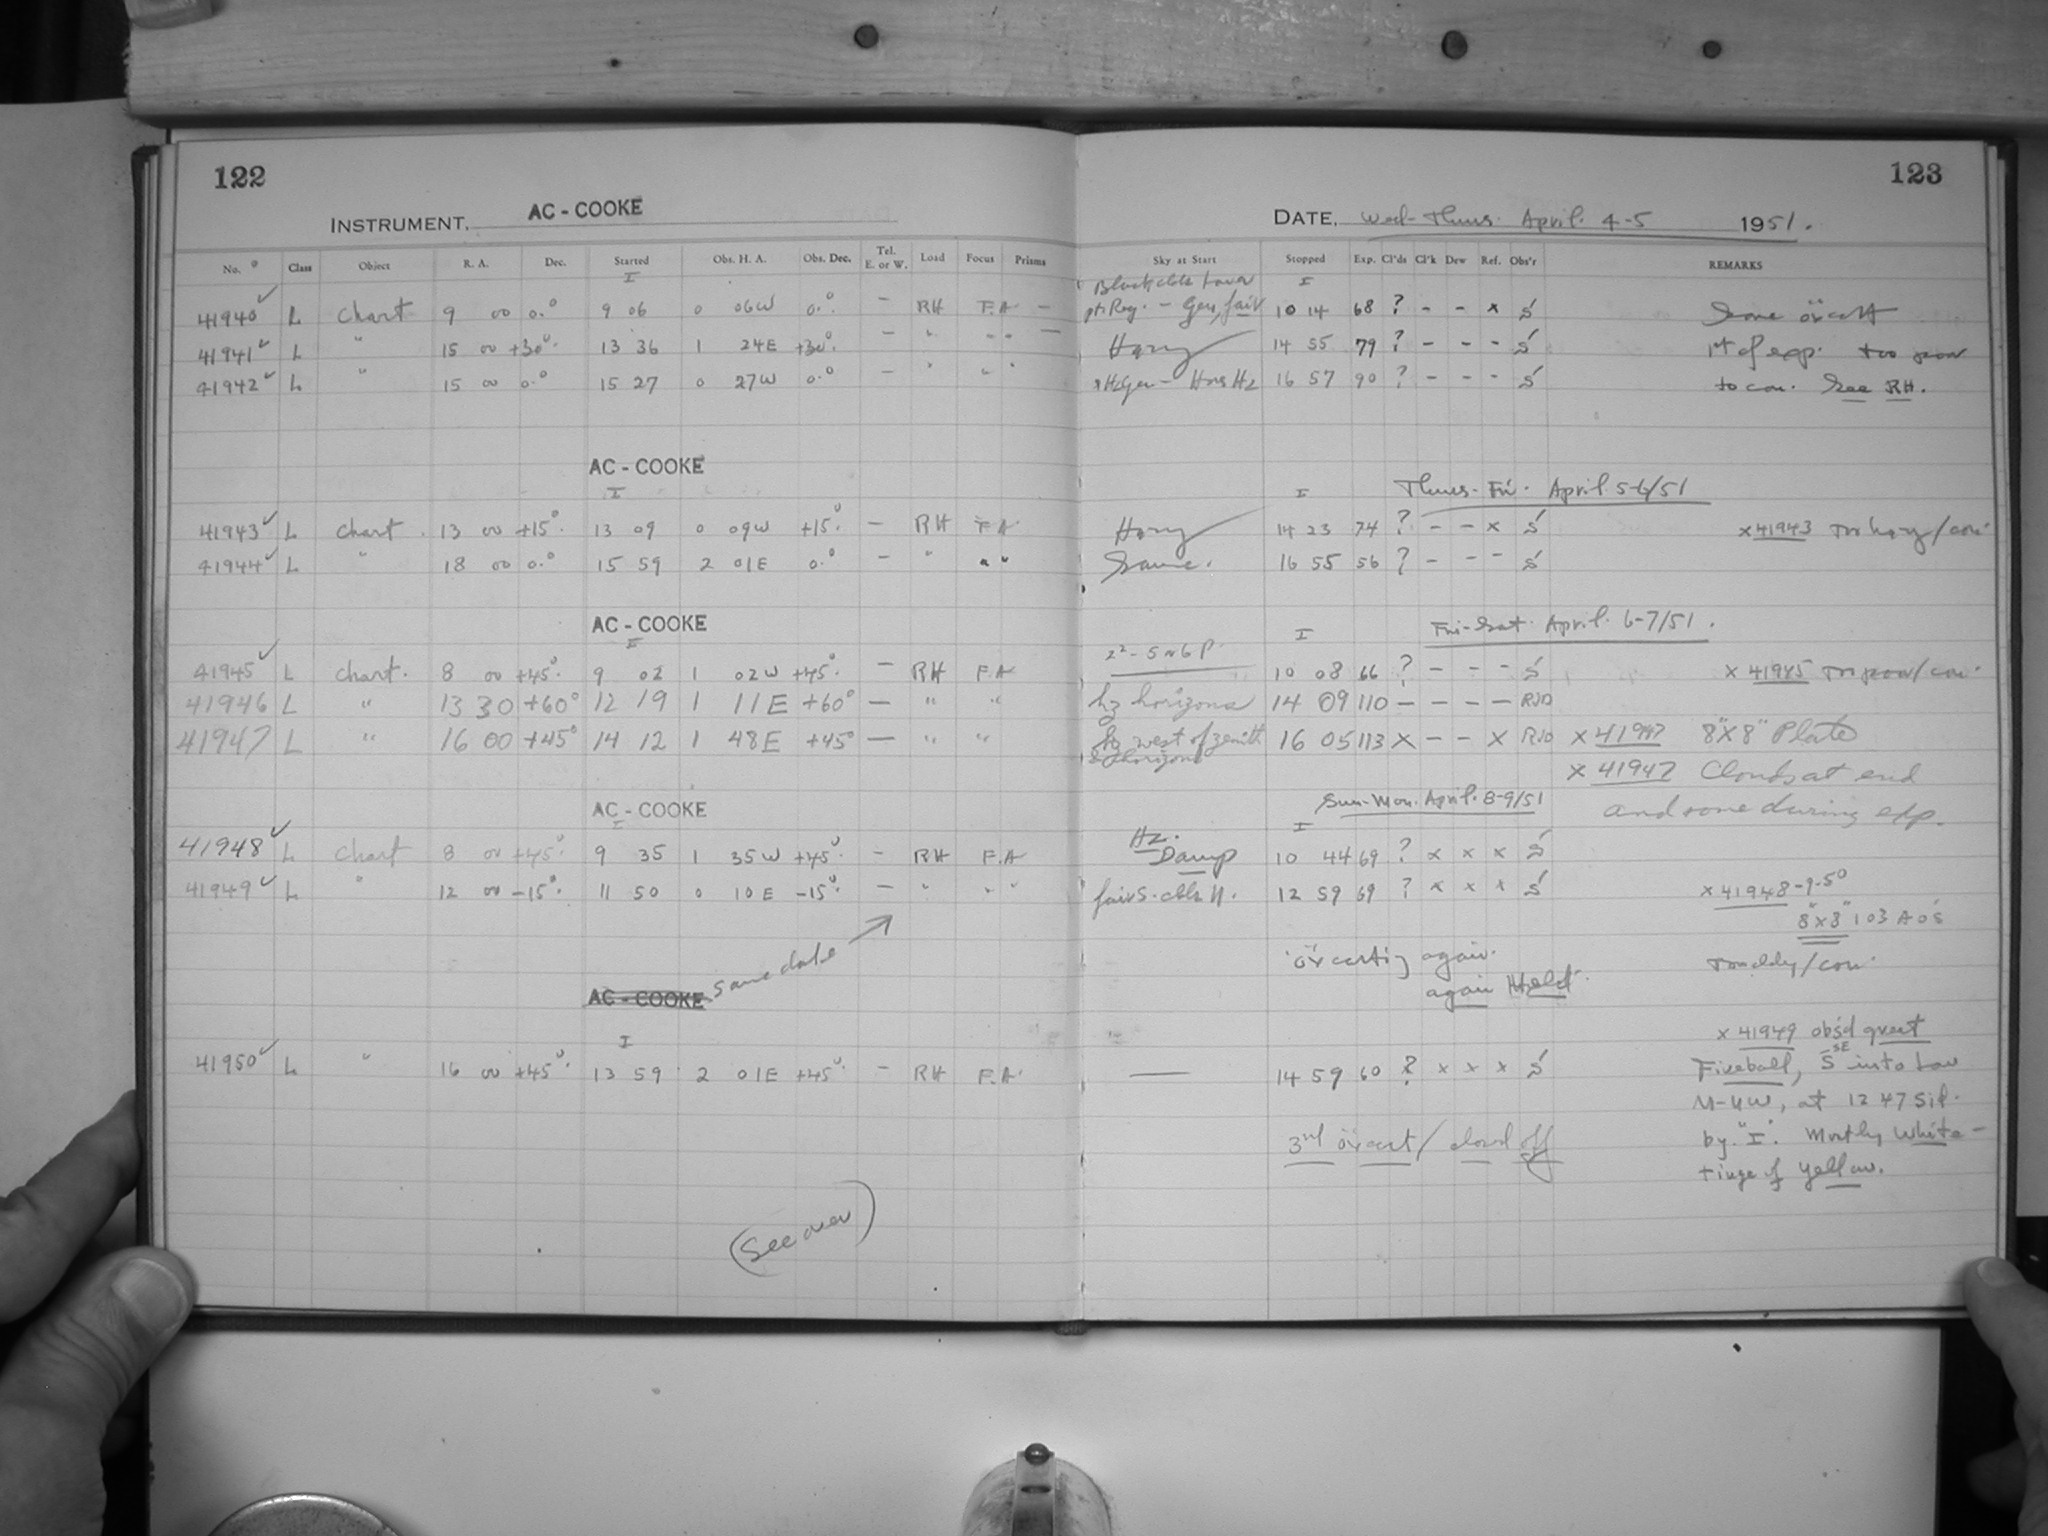 122
INSTRUMENT, AC - COOKE
No. Class Object R. A. Dec. Started Obs. H. A. Obs. Dec. Tel. E. or W. Load Focus Prisms
I
41940 ✓ L Chart 9 00 0.° 9 06 0 06W 0.° - RH F.A -
41941 ✓ L " 15 00 +30° 13 36 1 24E +30° - " " " -
41942 ✓ L " 15 00 0.° 15 27 0 27W 0.° - " " "
AC - COOKE
I
41943 ✓ L Chart 13 00 +15° 13 09 0 09W +15° - RH F.A
41944 ✓ L " 18 00 0.° 15 59 2 01E 0.° - " " "
AC - COOKE
I
41945 ✓ L Chart. 8 00 +45° 9 02 1 02W +45° - RH F.A
41946 L " 13 30 +60° 12 19 1 11E +60° - " "
41947 ✓ L " 16 00 +45° 14 12 1 48E +45° - " "
AC - COOKE
I
41948 ✓ L Chart 8 00 +45° 9 35 1 35W +45° - RH F.A
41949 ✓ L " 12 00 -15° 11 50 0 10E -15° - " " "
same date
AC - COOKE
I
41950 ✓ L " 16 00 +45° 13 59 2 01E +45° - RH F.A
(See over)
123
DATE, Wed - Thurs. April. 4-5 1951.
Sky at Start Stopped Exp. Cl'ds Cl'k Dew Ref. Obs'r REMARKS
I
Gen, fair 10 14 68 ? - - x S
Hazy 14 55 79 ? - - - S 1st of exp. too poor
16 57 90 ? - - - S to con. See RH.
Thurs - Fri. April. 5-6/51
I
Hazy 14 23 74 ? - - x S x 41943 Too hazy/con.
Same. 16 55 56 ? - - - S
Fri-Sat. April. 6-7/51.
I
10 08 66 ? - - - S x 41945 Too poor/con.
hz horizons 14 09 110 - - - - RJO
hz west of zenith 16 05 113 x - - x RJO x 41947 8"X8" Plate
& horizons
x 41947 Clouds at end
and some during exp.
Sun-Mon. April. 8-9/51
I
Hz.
Damp 10 44 69 ? x x x S
fair S. clds N. 12 59 69 ? x x x S x 41948-9-50
8"x8" 103 A O's
again.
again Held.
x 41949 obs'd great
— 14 59 60 ? x x x S Fireball, S SE into Low
N-NW, at 12 47 Sid.
3rd / closed off by "I". Mostly White -
tinge of yellow.